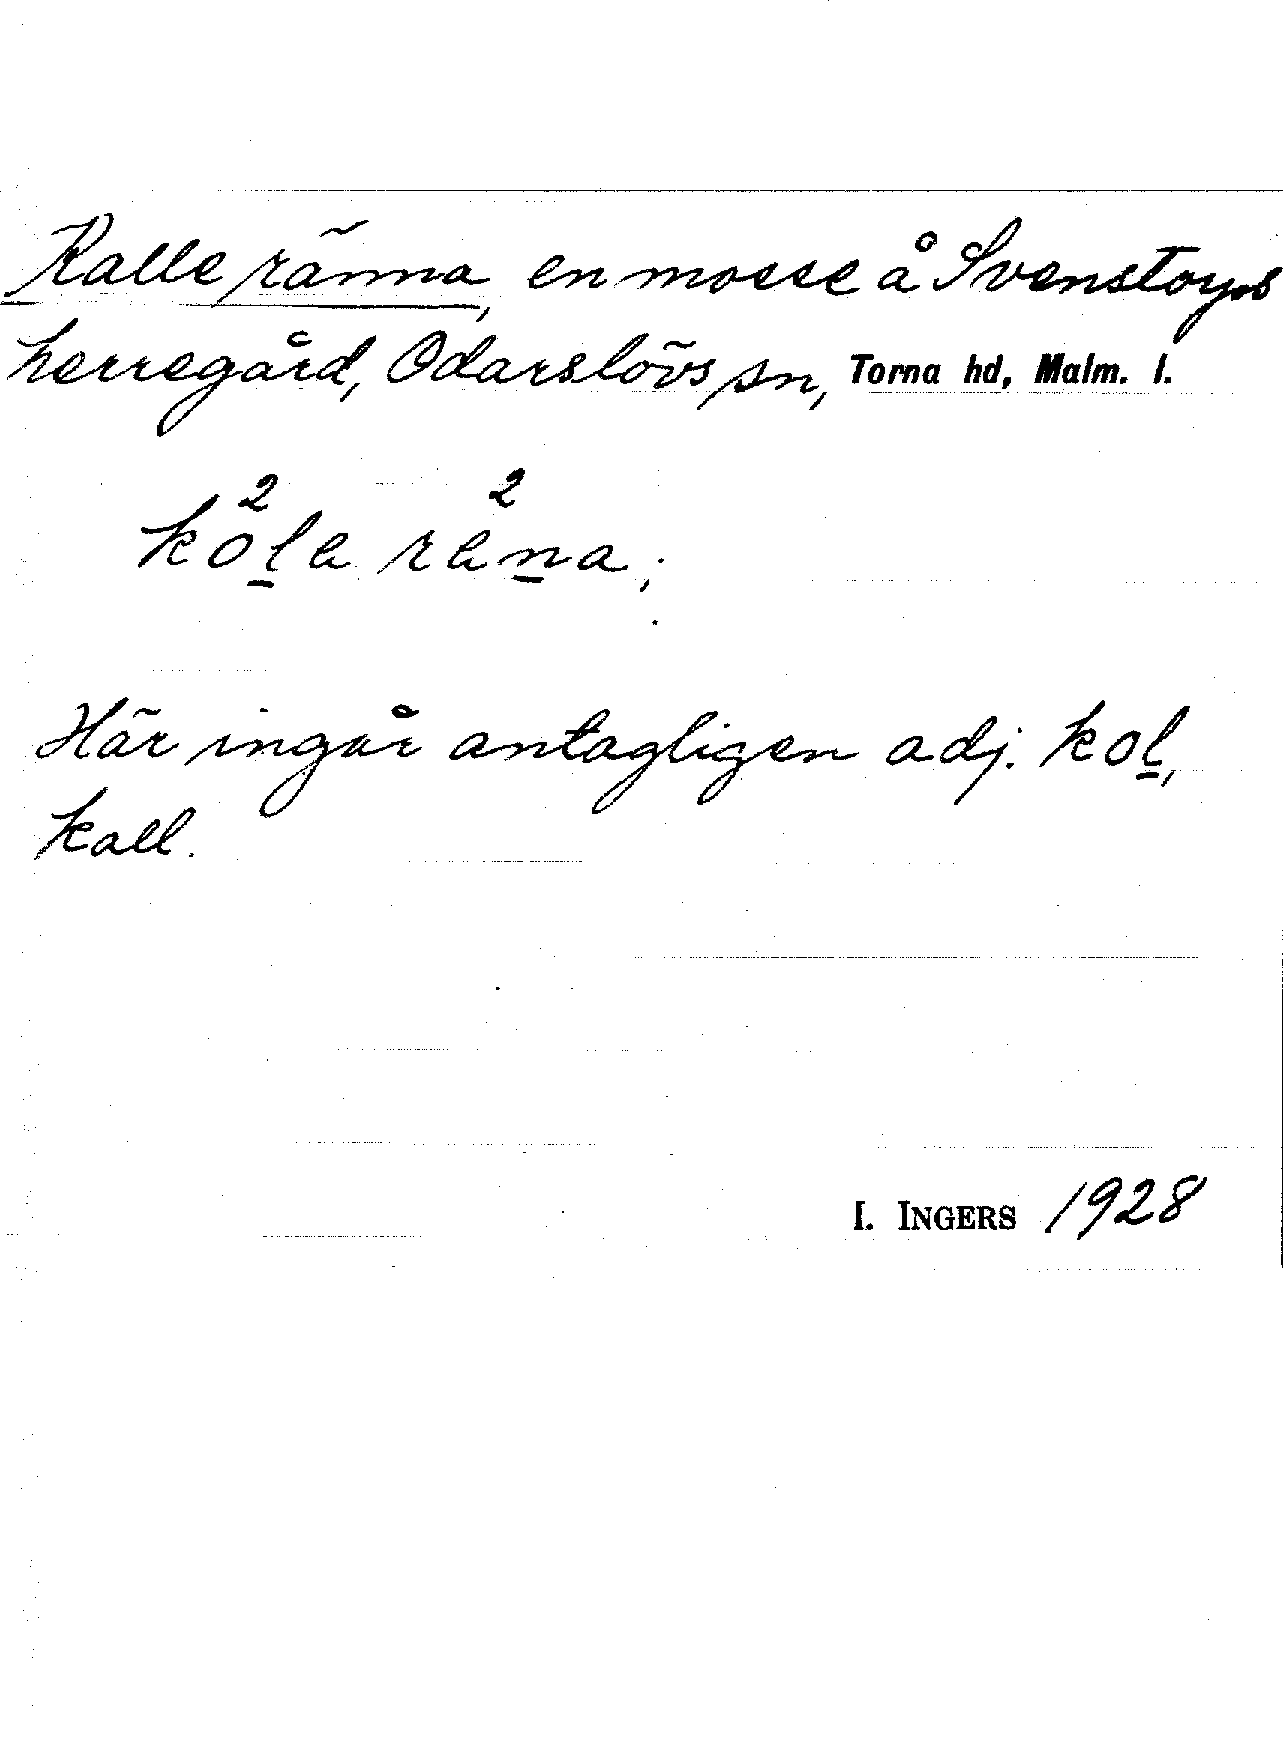 Kalle ränna, en mosse å Svenstorps
herregård, Odarslövs sn, Torna hd, Malm. l.
2 2
kola räna,
Här ingår antagligen adj. kol,
kall.
I. INGERS 1928